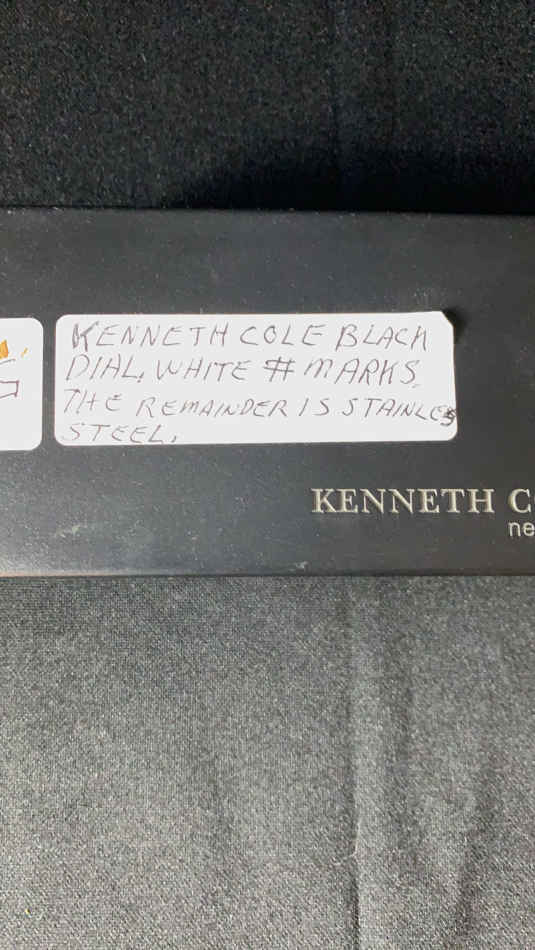 KENNETH COLE BLACK
DIAL, WHITE # MARKS.
THE REMAINDER IS STAINLES
STEEL.
KENNETH C
ne